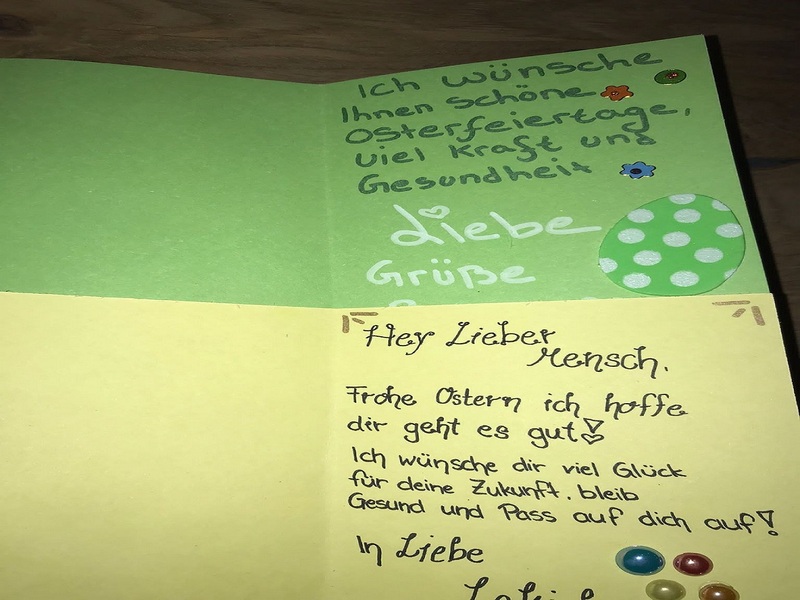 Ich wünsche
Ihnen schöne
Osterfeiertage,
viel Kraft und
Gesundheit
Liebe
Grüße
Hey Lieber
Mensch.
Frohe Ostern ich hoffe
dir geht es gut!
Ich wünsche dir viel Glück
für deine Zukunft. bleib
Gesund und Pass auf dich auf!
In Liebe